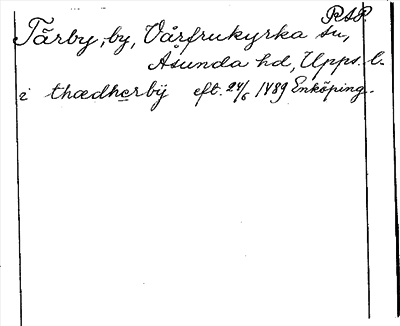 RSP
Tärby, by, Vårfrukyrka sn,
Åsunda hd, Upps. l.
i thædherbÿ eft. 24/6 1489 Enköping.